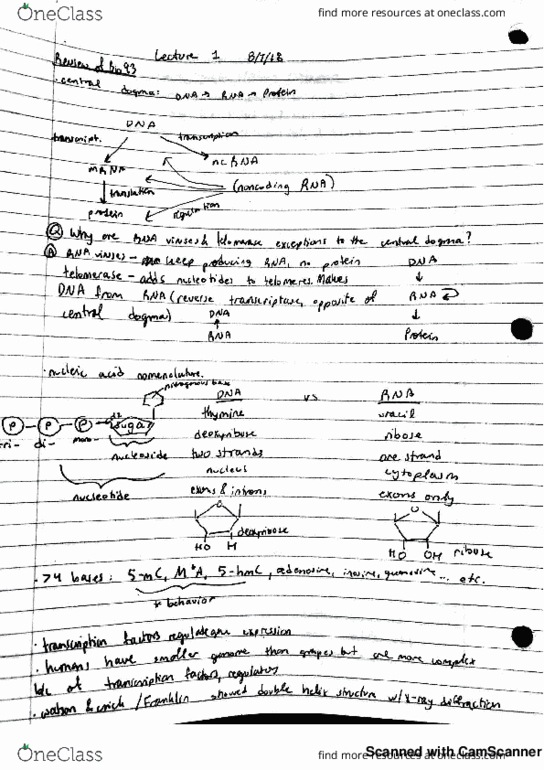 OneClass
find more resources at oneclass.com
Lecture 1 8/7/18
Review of Bio 93
· central dogma: DNA → RNA → Protein
DNA
transcript. transcription
mRNA ncRNA
translation (noncoding RNA)
protein regulation
Q Why are RNA viruses & telomerase exceptions to the central dogma?
A RNA viruses - keep producing RNA, no protein DNA
telomerase - adds nucleotides to telomeres. Makes
DNA from RNA (reverse transcriptase, opposite of RNA
central dogma) DNA
RNA Protein
· nucleic acid nomenclature.
nitrogenous base
DNA vs RNA
thymine uracil
P - P - P - sugar
tri- di- mono- deoxyribose ribose
nucleoside two strands one strand
nucleus cytoplasm
nucleotide exons & introns exons only
O O
deoxyribose
HO H HO OH ribose
· >4 bases: 5-mC, 5-hmC, adenosine, inosine, guanosine ... etc.
behavior
· transcription factors regulate gene expression
· humans have smaller genome than grapes but are more complex
b/c of transcription factors, regulators
· watson & crick / Franklin showed double helix structure w/ x-ray diffraction
Scanned with CamScanner
OneClass
find more resources at oneclass.com